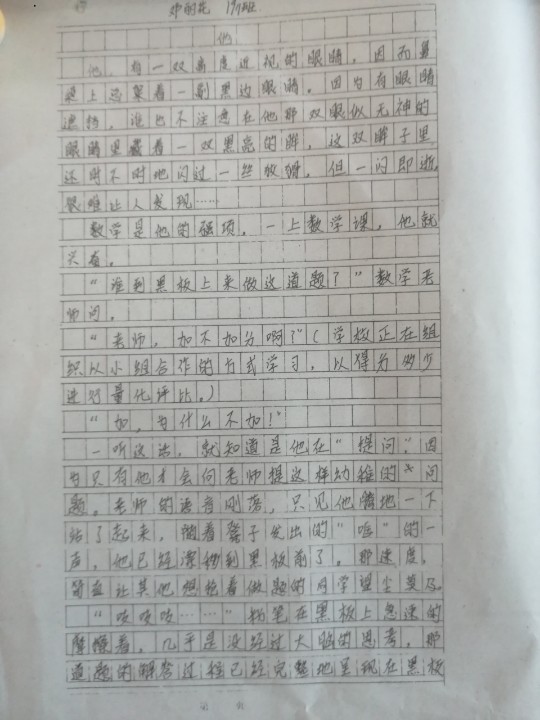 他
他，有一双高度近视的眼睛，因而鼻
梁上总架着一副黑边眼睛。因为有眼睛
遮挡，谁也不注意在他那双眼似无神的
眼睛里藏着一双黑亮的眸，这双眸子里
还时不时地闪过一丝狡猾，但一闪即逝，
很难让人发现……
数学是他的强项，一上数学课，他就
兴奋。
“谁到黑板上来做这道题？”数学老
师问。
“老师，加不加分啊？”（学校正在组
织以小组合作的方式学习，以得分多少
进行量化评比。）
“加，为什么不加！”
一听这话，就知道是他在“提问”。因
为只有他才会向老师提这样幼稚的问
题。老师的话音刚落，只见他腾地一下
站了起来，随着凳子发出的“吱”的一
声，他已经漂移到黑板前了。那速度，
简直让其他想抢着做题的同学望尘莫及。
“吱吱吱……”粉笔在黑板上急速的
摩擦着。几乎是没经过大脑的思考，那
道题的解答过程已经完整地呈现在黑板